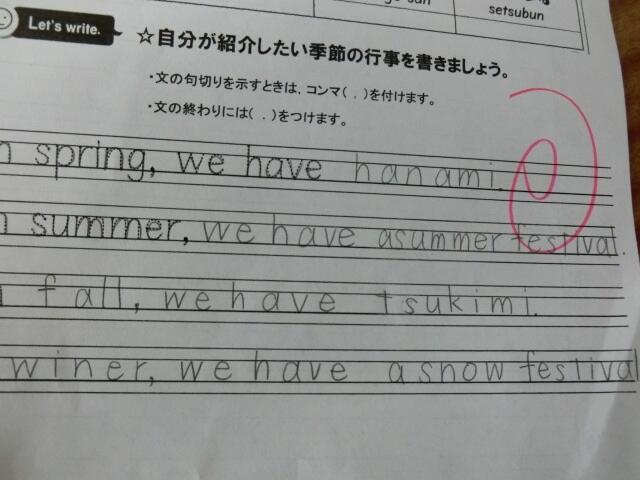 setsubun
Let's write.
☆自分が紹介したい季節の行事を書きましょう。
・文の句切りを示すときは,コンマ( , )を付けます。
・文の終わりには( . )をつけます。
n spring, we have hanami.
n summer, we have asummer festival.
fall, we have tsukimi.
winer, we have asnow festival